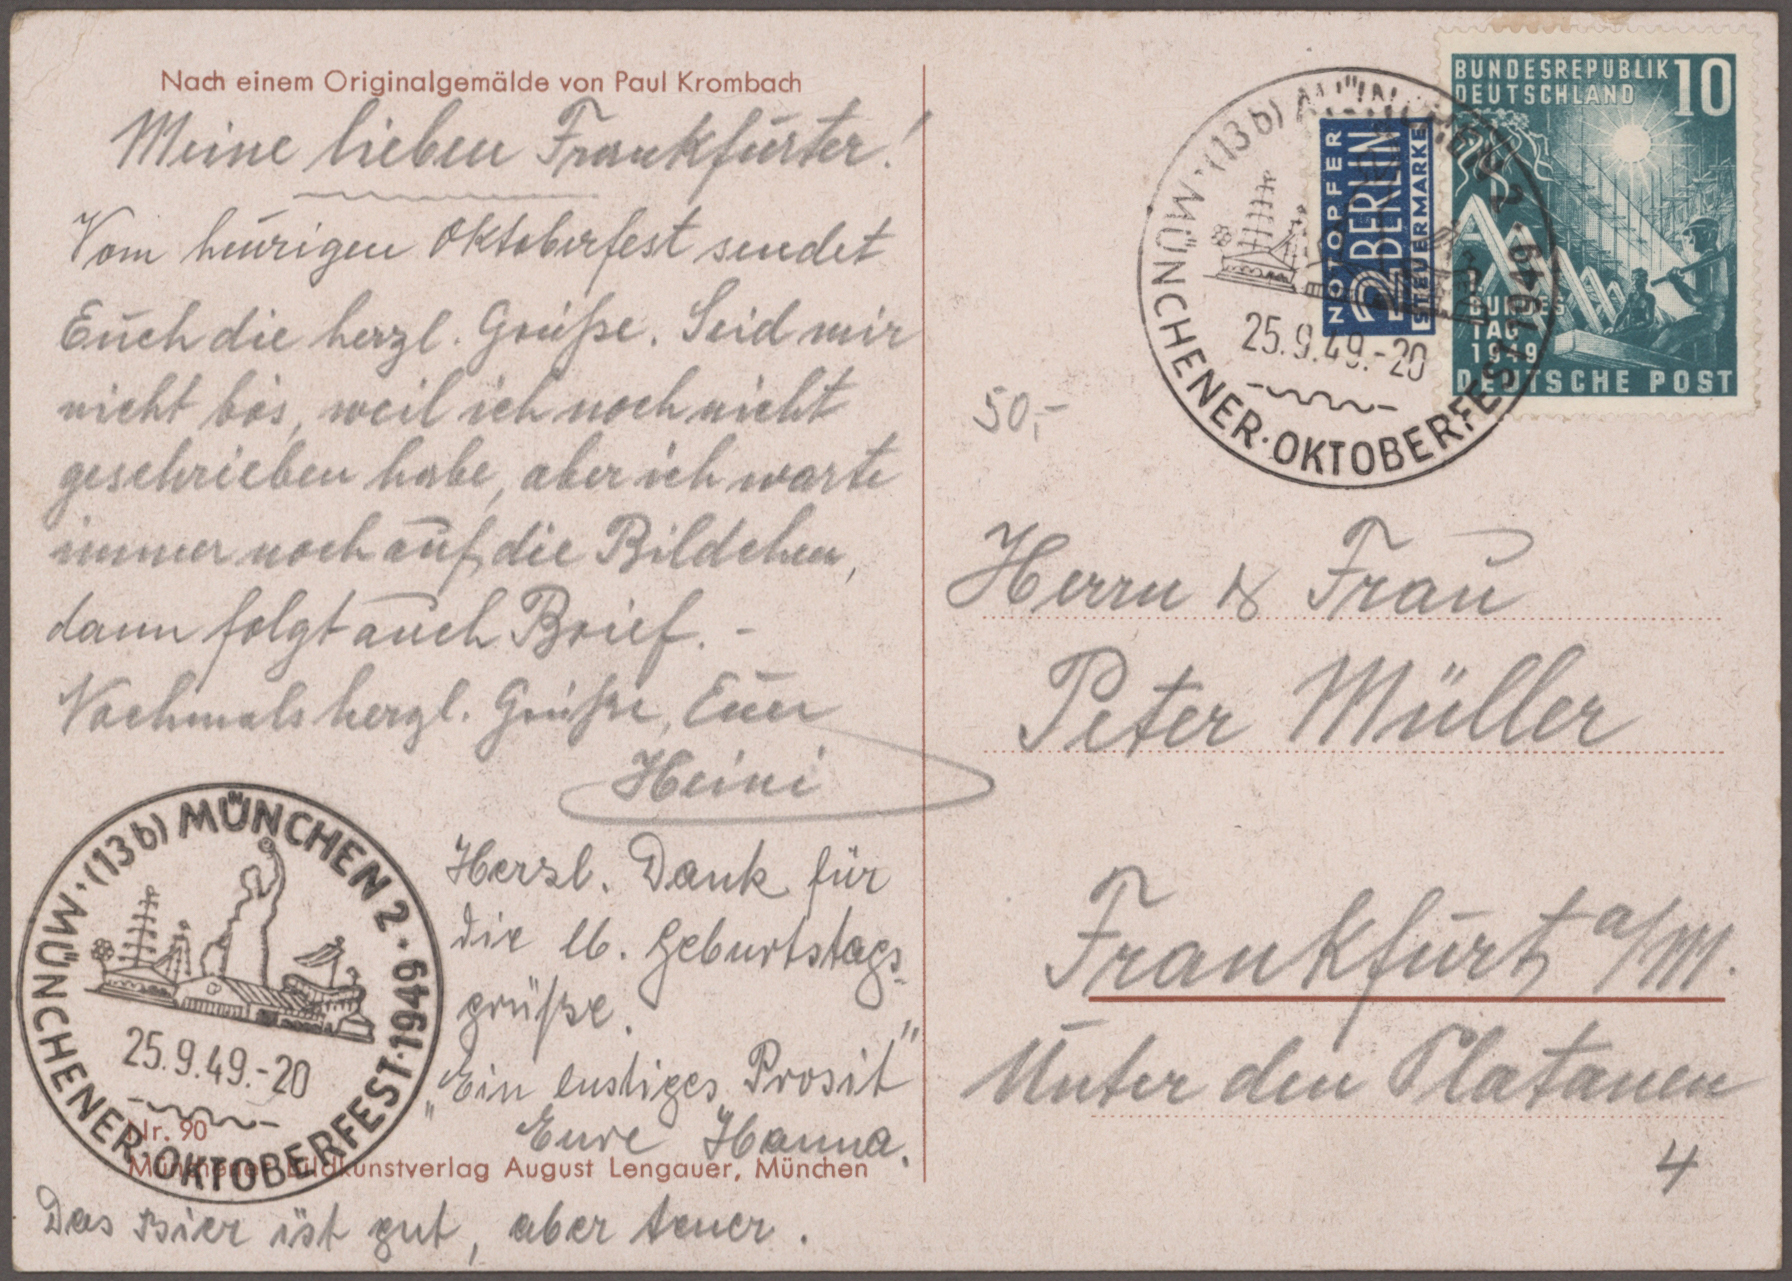 Nach einem Originalgemälde von Paul Krombach
Meine lieben Frankfurter!
Vom heurigen Oktoberfest sendet
Euch die herzl. Grüße. Seid mir
nicht bös, weil ich noch nicht
geschrieben habe, aber ich warte
immer noch auf die Bildchen,
dann folgt auch Brief. –
Nochmals herzl. Grüße, Euer
Heini
Herzl. Dank für
die lb. Geburtstags-
grüße.
"Ein lustiges Prosit"
Eure Hanna.
Das Bier ist gut, aber teuer.
(13b) MÜNCHEN 2
25.9.49.-20
MÜNCHENER·OKTOBERFEST·1949
Nr. 90
Münchener Bildkunstverlag August Lengauer, München
(13b) MÜNCHEN 2
25.9.49.-20
MÜNCHENER·OKTOBERFEST·1949
NOTOPFER
2 BERLIN
STEUERMARKE
BUNDESREPUBLIK 10
DEUTSCHLAND
1.
BUNDES
TAG
1949
DEUTSCHE POST
50,-
Herrn & Frau
Peter Müller
Frankfurt a/M.
Unter den Platanen
4